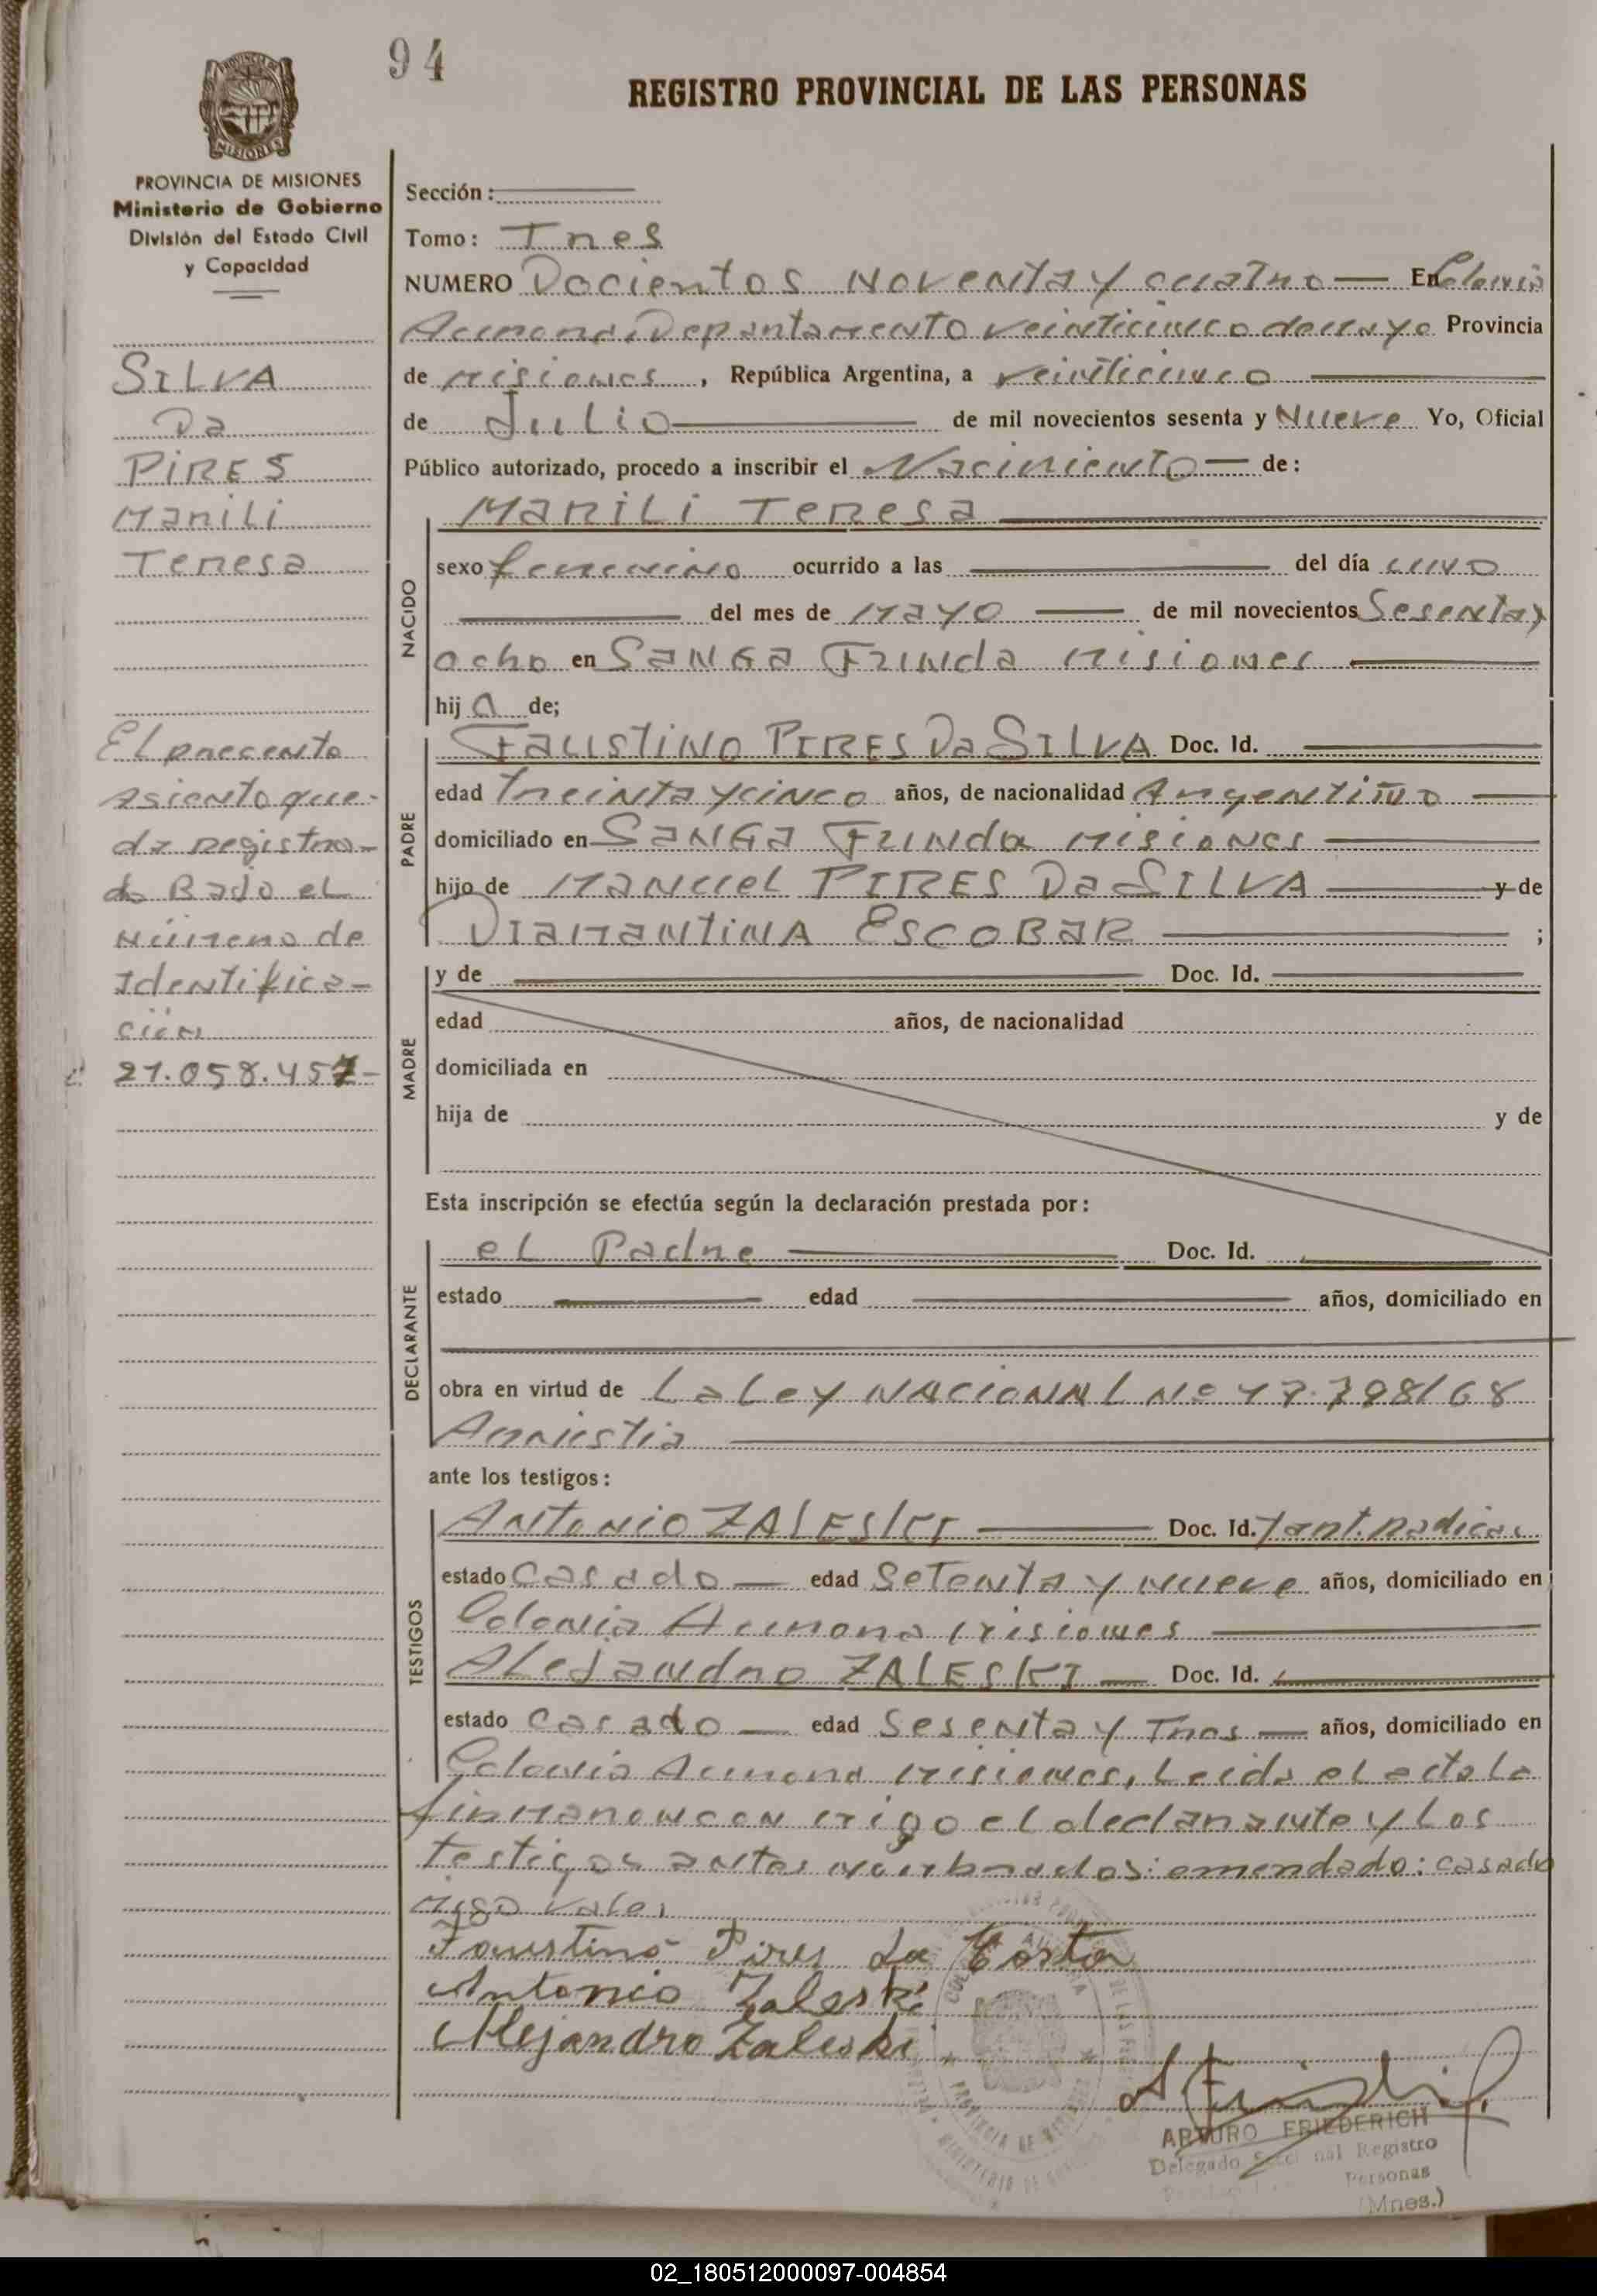 94
REGISTRO PROVINCIAL DE LAS PERSONAS
PROVINCIA DE MISIONES
Ministerio de Gobierno
División del Estado Civil
y Capacidad
SILVA
Da
PIRES
Marili
Teresa
El presente
asiento que-
da registra-
do Bajo el
Número de
Identifica-
ción
21.058.457-
Sección:
Tomo: Tres
NUMERO Docientos Noventa y cuatro — En Colonia
Aurora, Departamento veinticinco de mayo Provincia
de misiones, República Argentina, a veinticinco
de Julio de mil novecientos sesenta y Nueve Yo, Oficial
Público autorizado, procedo a inscribir el Nacimiento — de:
NACIDO
Marili Teresa
sexo femenino ocurrido a las del día uno
del mes de Mayo de mil novecientos Sesenta y
ocho en SANGa Funda misiones
hij a de;
PADRE
Faustino PIRES Da SILVA Doc. Id.
edad Treinta y cinco años, de nacionalidad Argentino
domiciliado en SANGa Funda misiones
hijo de Manuel PIRES Da SILVA y de
Diamantina ESCOBAR ;
MADRE
y de Doc. Id.
edad años, de nacionalidad
domiciliada en
hija de y de
Esta inscripción se efectúa según la declaración prestada por:
DECLARANTE
el Padre Doc. Id.
estado edad años, domiciliado en
obra en virtud de La Ley NACIONAL Nº 17.798/68
Amnistia
ante los testigos:
TESTIGOS
Antonio ZALESKI Doc. Id.
estado casado — edad Setenta y nueve años, domiciliado en
Colonia Aurora misiones
Alejandro ZALESKI — Doc. Id.
estado casado — edad Sesenta y Tres — años, domiciliado en
Colonia Aurora misiones, Leida el acta la
firmaron con migo el declarante y Los
testigos antes nombrados: emendado: casado
migo vale,
Faustino Pires da Costa
Antonio Zaleski
Alejandro Zaleski
ARTURO FRIEDERICH
Delegado Registro
Personas
(Mnes.)
02_180512000097-004854